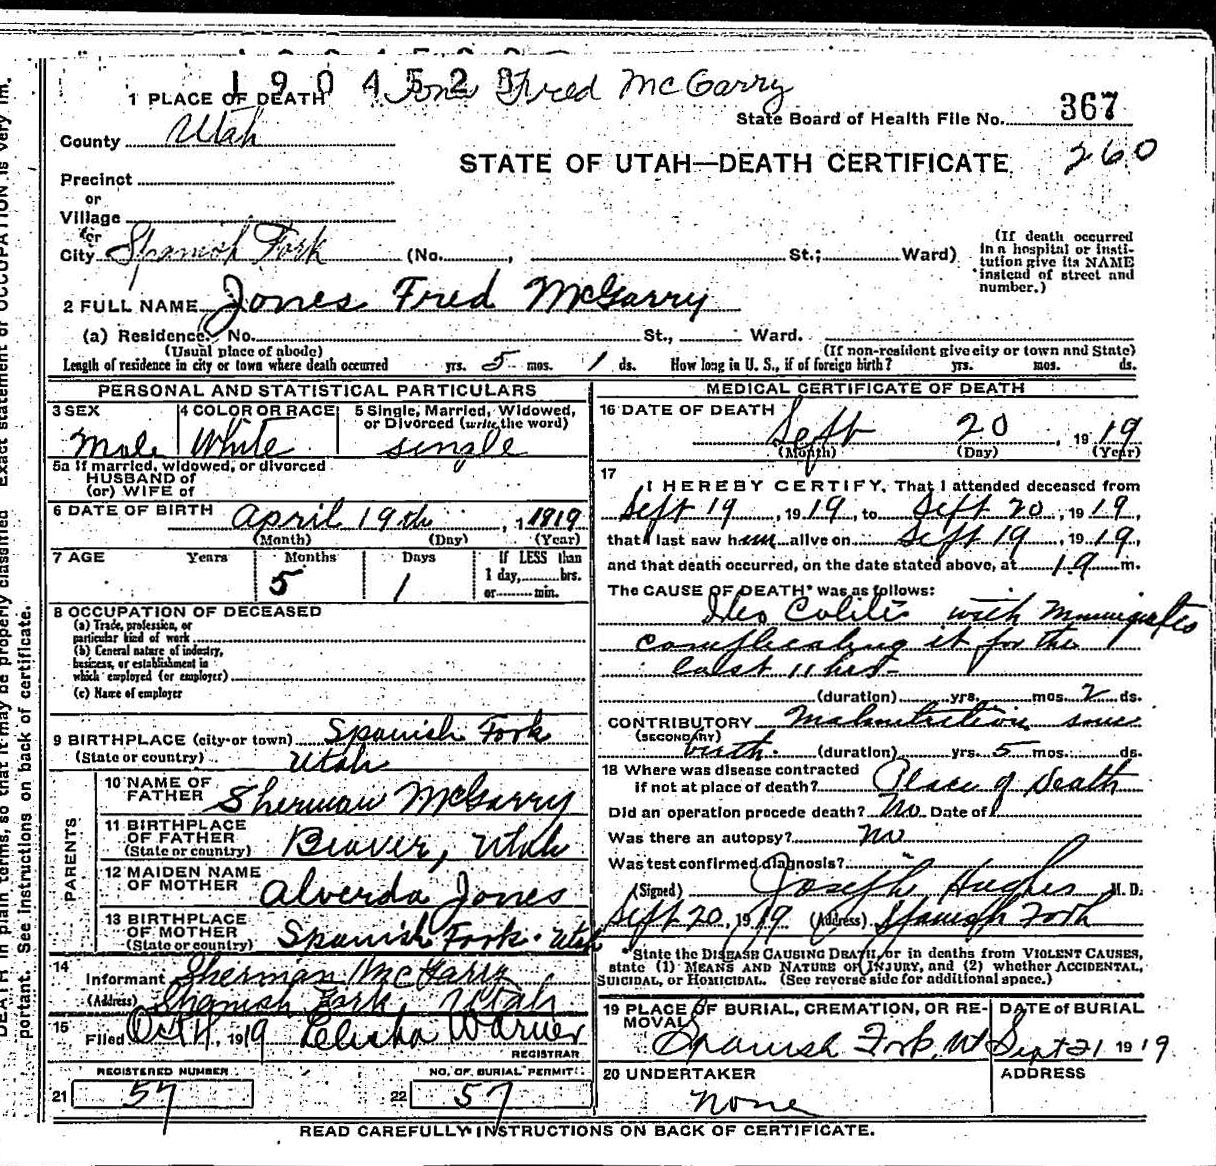 1904523
Jones Fred McGarry
1 PLACE OF DEATH
State Board of Health File No. 367
County Utah
260
STATE OF UTAH—DEATH CERTIFICATE
Precinct
or
Village
or
City Spanish Fork (No. , St.; Ward)
(If death occurred in a hospital or institution give its NAME instead of street and number.)
2 FULL NAME Jones Fred McGarry
(a) Residence. No. St., Ward.
(Usual place of abode) (If non-resident give city or town and State)
Length of residence in city or town where death occurred yrs. 5 mos. 1 ds. How long in U. S., if of foreign birth? yrs. mos. ds.
PERSONAL AND STATISTICAL PARTICULARS
3 SEX Male
4 COLOR OR RACE White
5 Single, Married, Widowed, or Divorced (write the word) single
5a If married, widowed, or divorced
HUSBAND of
(or) WIFE of
6 DATE OF BIRTH April 19th, 1919
(Month) (Day) (Year)
7 AGE Years Months Days If LESS than
5 1 1 day, hrs.
or min.
8 OCCUPATION OF DECEASED
(a) Trade, profession, or
particular kind of work
(b) General nature of industry,
business, or establishment in
which employed (or employer)
(c) Name of employer
9 BIRTHPLACE (city or town) Spanish Fork
(State or country) Utah
PARENTS
10 NAME OF FATHER Sherman McGarry
11 BIRTHPLACE OF FATHER Beaver, Utah
(State or country)
12 MAIDEN NAME OF MOTHER Alverda Jones
13 BIRTHPLACE OF MOTHER Spanish Fork. Utah
(State or country)
14
Informant Sherman McGarry
(Address) Spanish Fork, Utah
15
Filed Oct 4, 1919
Warner
REGISTRAR
REGISTERED NUMBER
21 57
NO. OF BURIAL PERMIT
22 57
MEDICAL CERTIFICATE OF DEATH
16 DATE OF DEATH
Sept 20, 1919
(Month) (Day) (Year)
17
I HEREBY CERTIFY, That I attended deceased from
Sept 19, 1919, to Sept 20, 1919,
that I last saw him alive on Sept 19, 1919,
and that death occurred, on the date stated above, at m.
The CAUSE OF DEATH* was as follows:
Ileo Colitis with Meningitis
complicating it for the
last 11 hrs.
(duration) yrs. mos. 2 ds.
CONTRIBUTORY Malnutrition since
(SECONDARY)
birth. (duration) yrs. 5 mos. ds.
18 Where was disease contracted
if not at place of death? Place of Death
Did an operation precede death? No Date of
Was there an autopsy? No
Was test confirmed diagnosis?
(Signed) Joseph Hughes M. D.
Sept 20, 1919 (Address) Spanish Fork
*State the DISEASE CAUSING DEATH, or in deaths from VIOLENT CAUSES,
state (1) MEANS AND NATURE OF INJURY, and (2) whether ACCIDENTAL,
SUICIDAL, or HOMICIDAL. (See reverse side for additional space.)
19 PLACE OF BURIAL, CREMATION, OR REMOVAL
Spanish Fork, Ut
DATE of BURIAL
Sept 21 1919.
20 UNDERTAKER
none
ADDRESS
READ CAREFULLY INSTRUCTIONS ON BACK OF CERTIFICATE.
DEATH in plain terms, so that it may be properly classified. Exact statement of OCCUPATION is very im-
portant. See instructions on back of certificate.